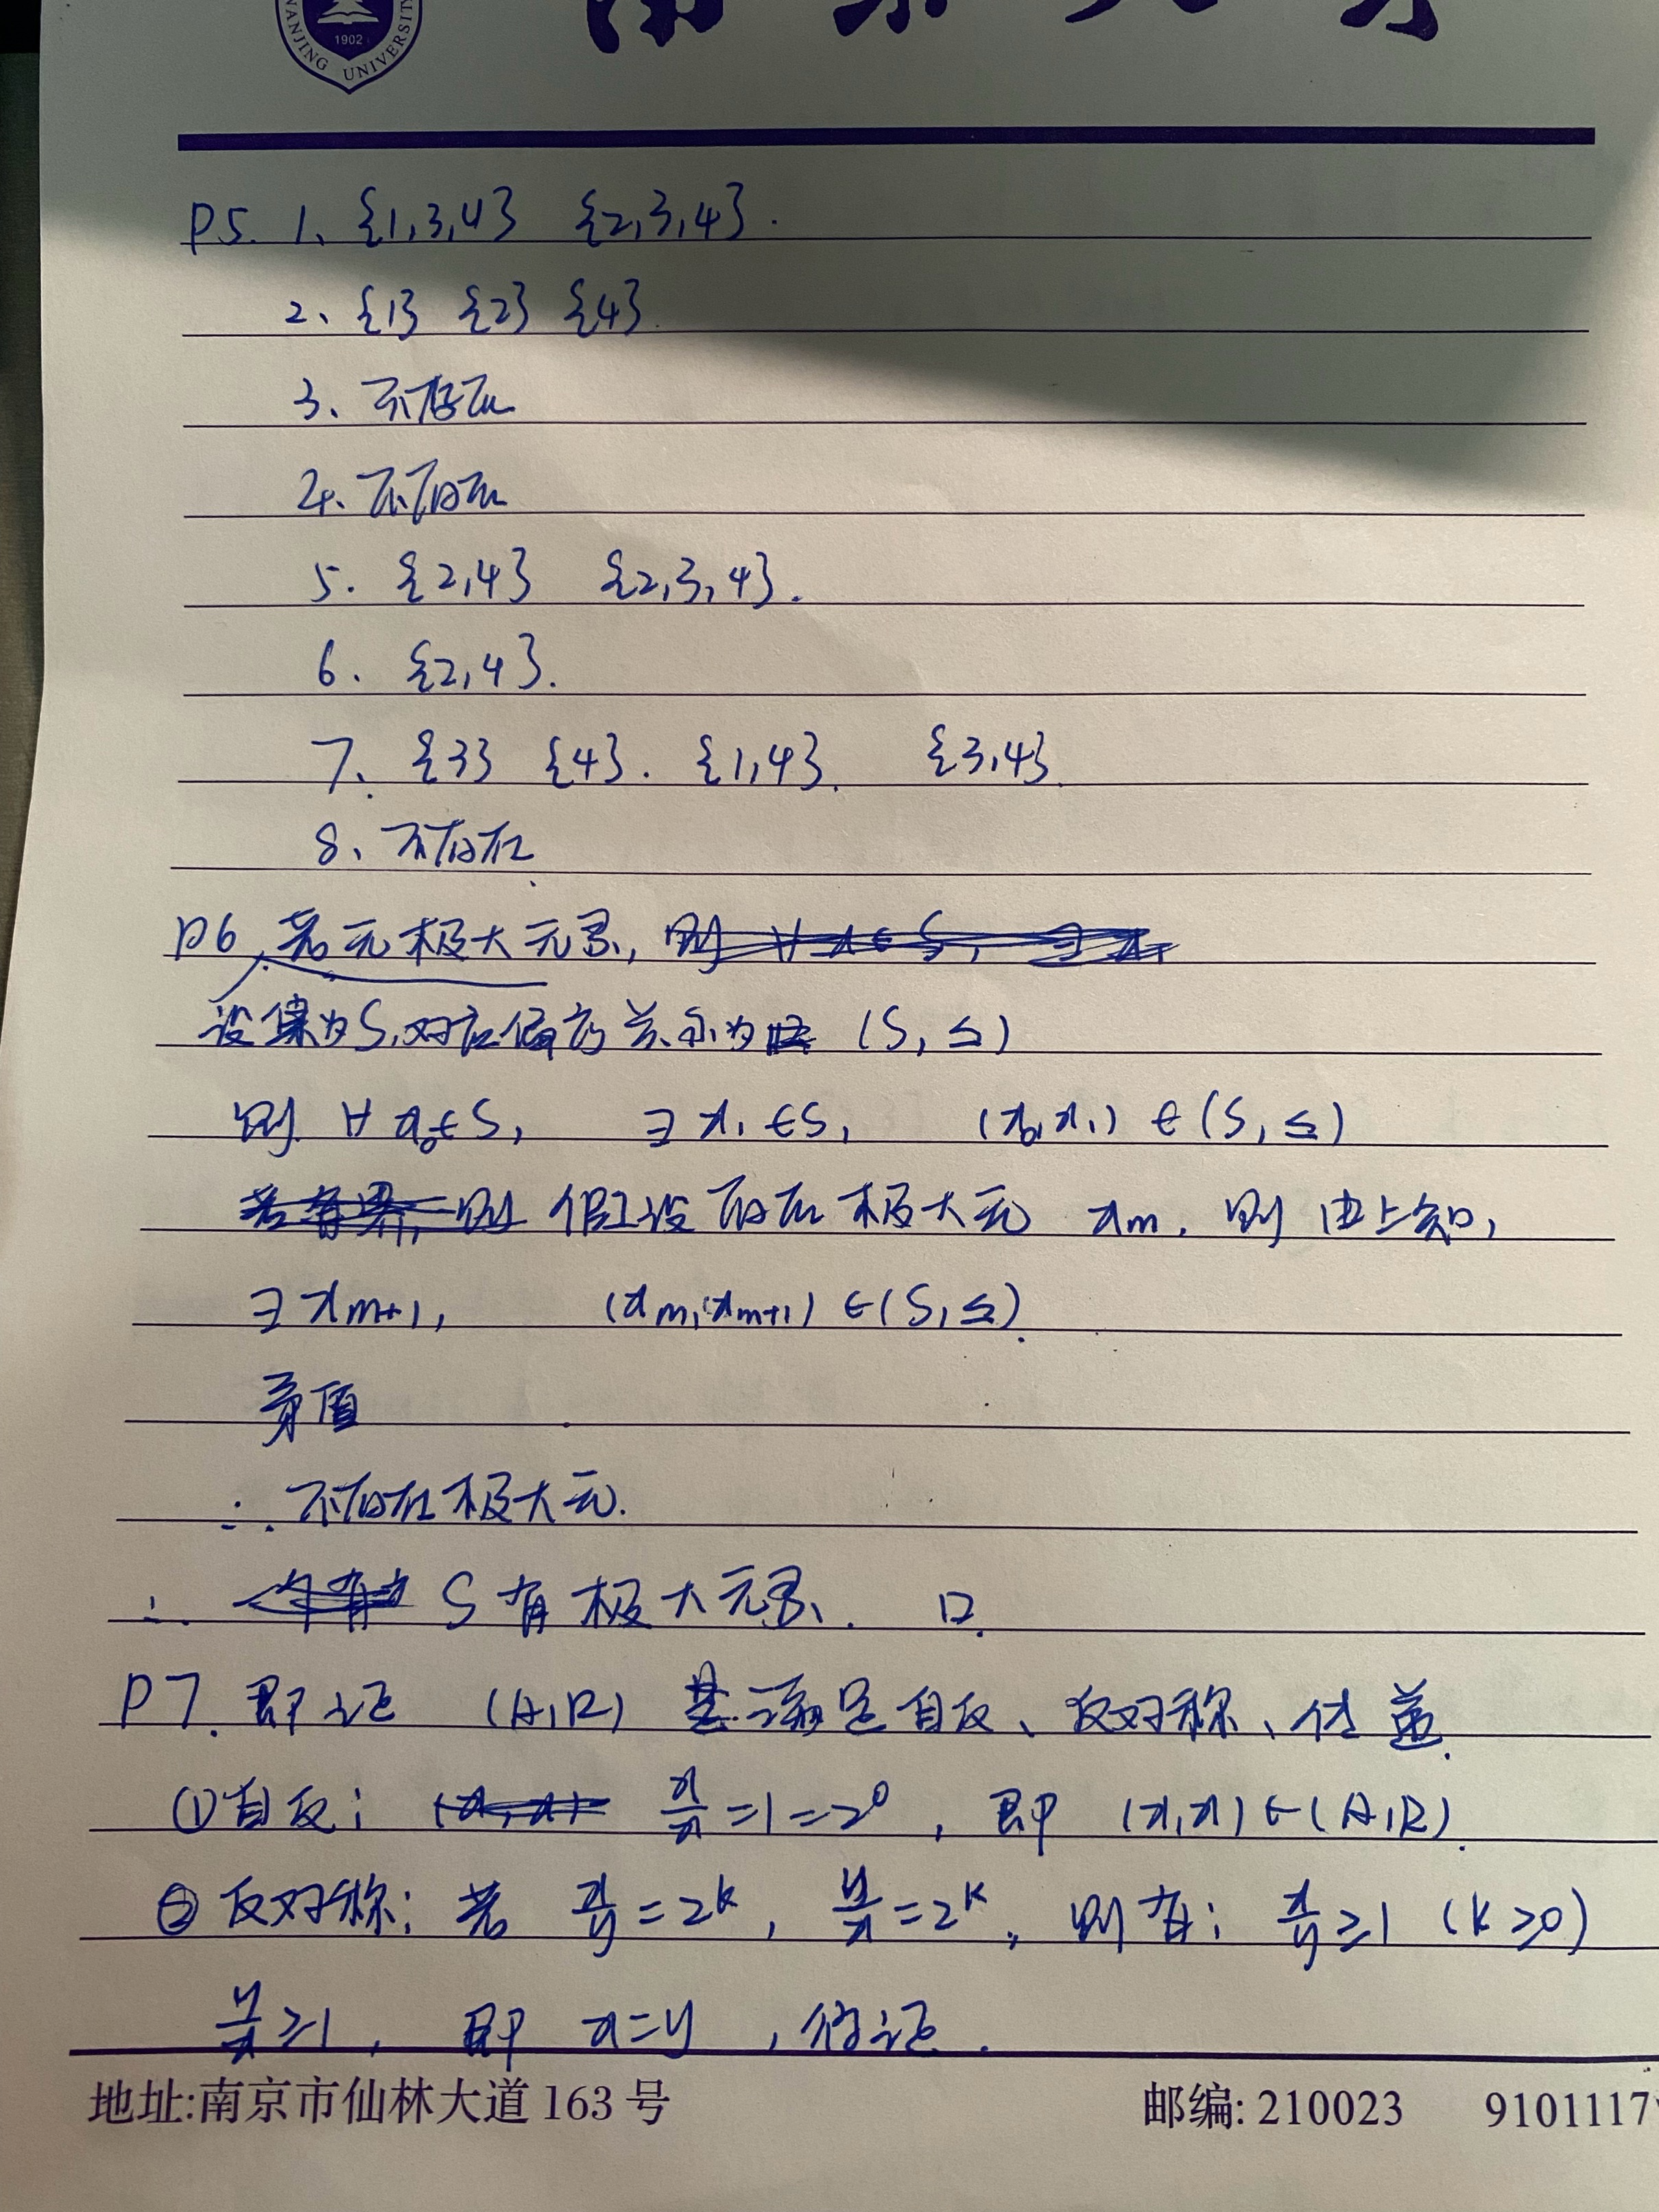 1902
NANJING UNIVERSITY
P5. 1、{1,3,4} {2,3,4}.
2、{1} {2} {4}.
3、不存在
4、不存在
5. {2,4} {2,3,4}.
6. {2,4}.
7、{3} {4}. {1,4}. {3,4}.
8、不存在.
P6、若无极大元素, 则
设集为S,对应偏序关系为 (S,≤)
则 ∀x₀∈S, ∃x₁∈S, (x₀,x₁)∈(S,≤)
假设存在极大元 xm. 则由上知,
∃xm+1, (xm,xm+1)∈(S,≤).
矛盾
∴不存在极大元.
∴ S有极大元素. 口.
P7. 即证 (A,R) 满足自反、反对称、传递.
①自反: x/x=1=2⁰, 即 (x,x)∈(A,R).
②反对称: 若 x/y=2ᵏ, y/x=2ᵏ, 则有: x/y≥1 (k≥0)
y/x≥1, 即 x=y, 得证.
地址:南京市仙林大道163号 邮编: 210023 9101117